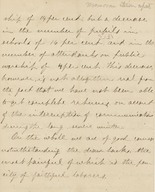 ship of 18 per cent. but a decrease
in the number of pupils in
schools of 16 per cent. and in the
number of attendants on public
worship of 4 per cent. This decrease
however is not altogether real from
the fact that we have not been able
to get complete returns on account
of the interruption of communication
during the last more months.
On the whole we are of good courage
notwithstanding the drawbacks the
most painful of which is the pau-
city of faithful laborers